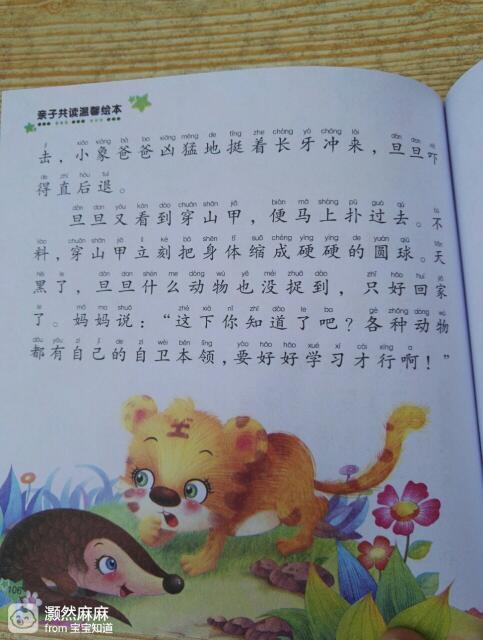 亲子共读温馨绘本
去，小象爸爸凶猛地挺着长牙冲来，旦旦吓
得直后退。
旦旦又看到穿山甲，便马上扑过去。不
料，穿山甲立刻把身体缩成硬硬的圆球。天
黑了，旦旦什么动物也没捉到，只好回家
了。妈妈说：“这下你知道了吧？各种动物
都有自己的自卫本领，要好好学习才行啊！”
106
灏然麻麻
from 宝宝知道